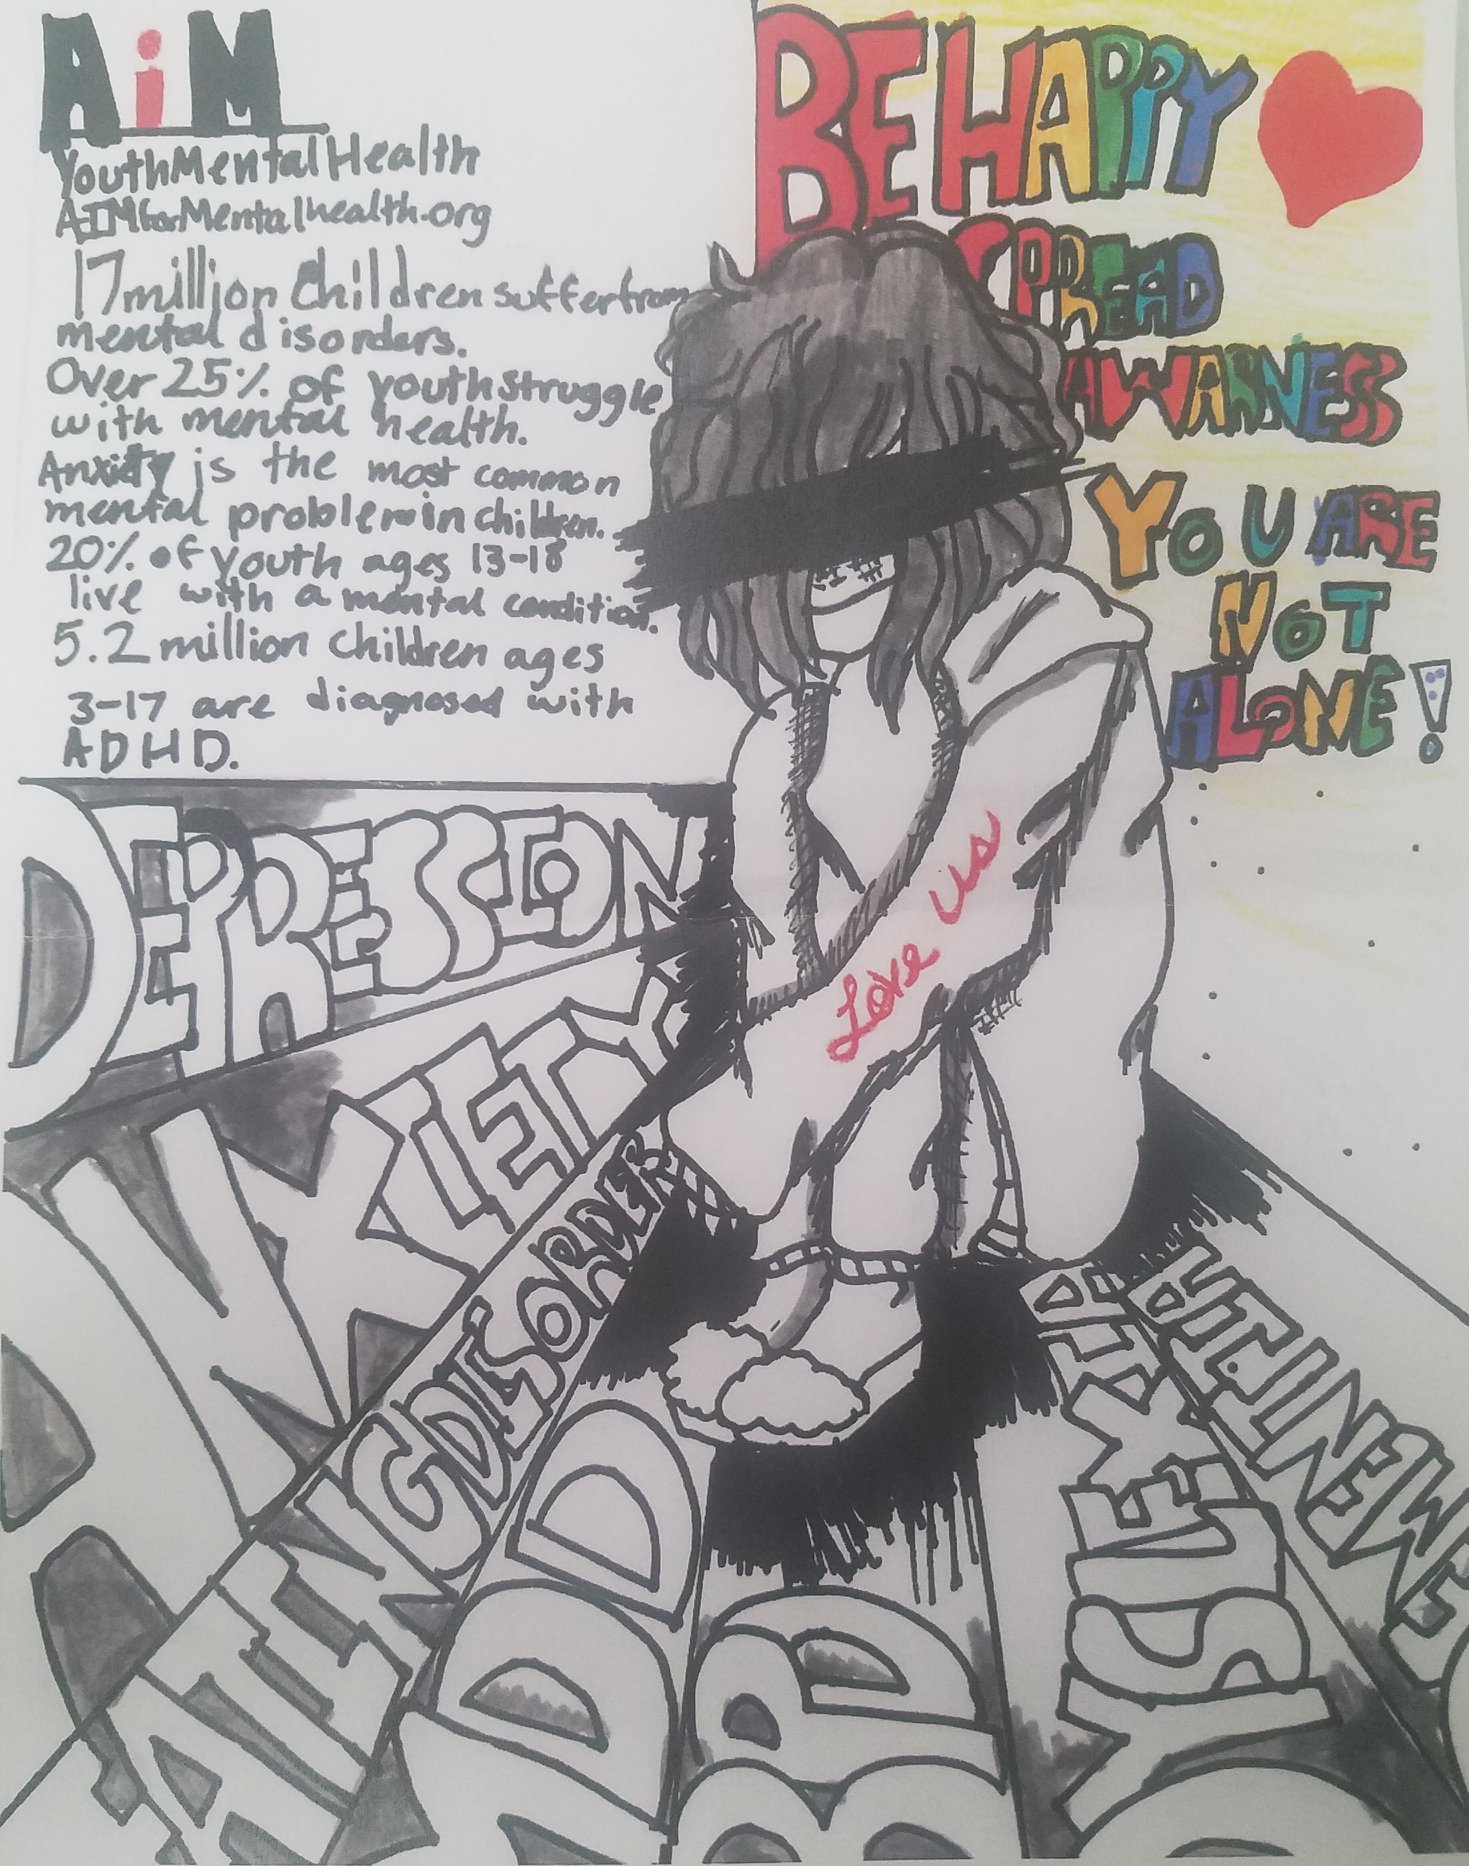 AiM
YouthMentalHealth
AIMforMentalhealth.org
17 million Children suffer from
mental disorders.
Over 25% of youth struggle
with mental health.
Anxiety is the most common
mental problem in children.
20% of youth ages 13-18
live with a mental condition.
5.2 million children ages
3-17 are diagnosed with
ADHD.
BE HAPPY
SPREAD
AWARNESS
YOU ARE
NOT
ALONE!
Love us
DEPRESSION
ANXIETY
EATING DISORDER
ADD